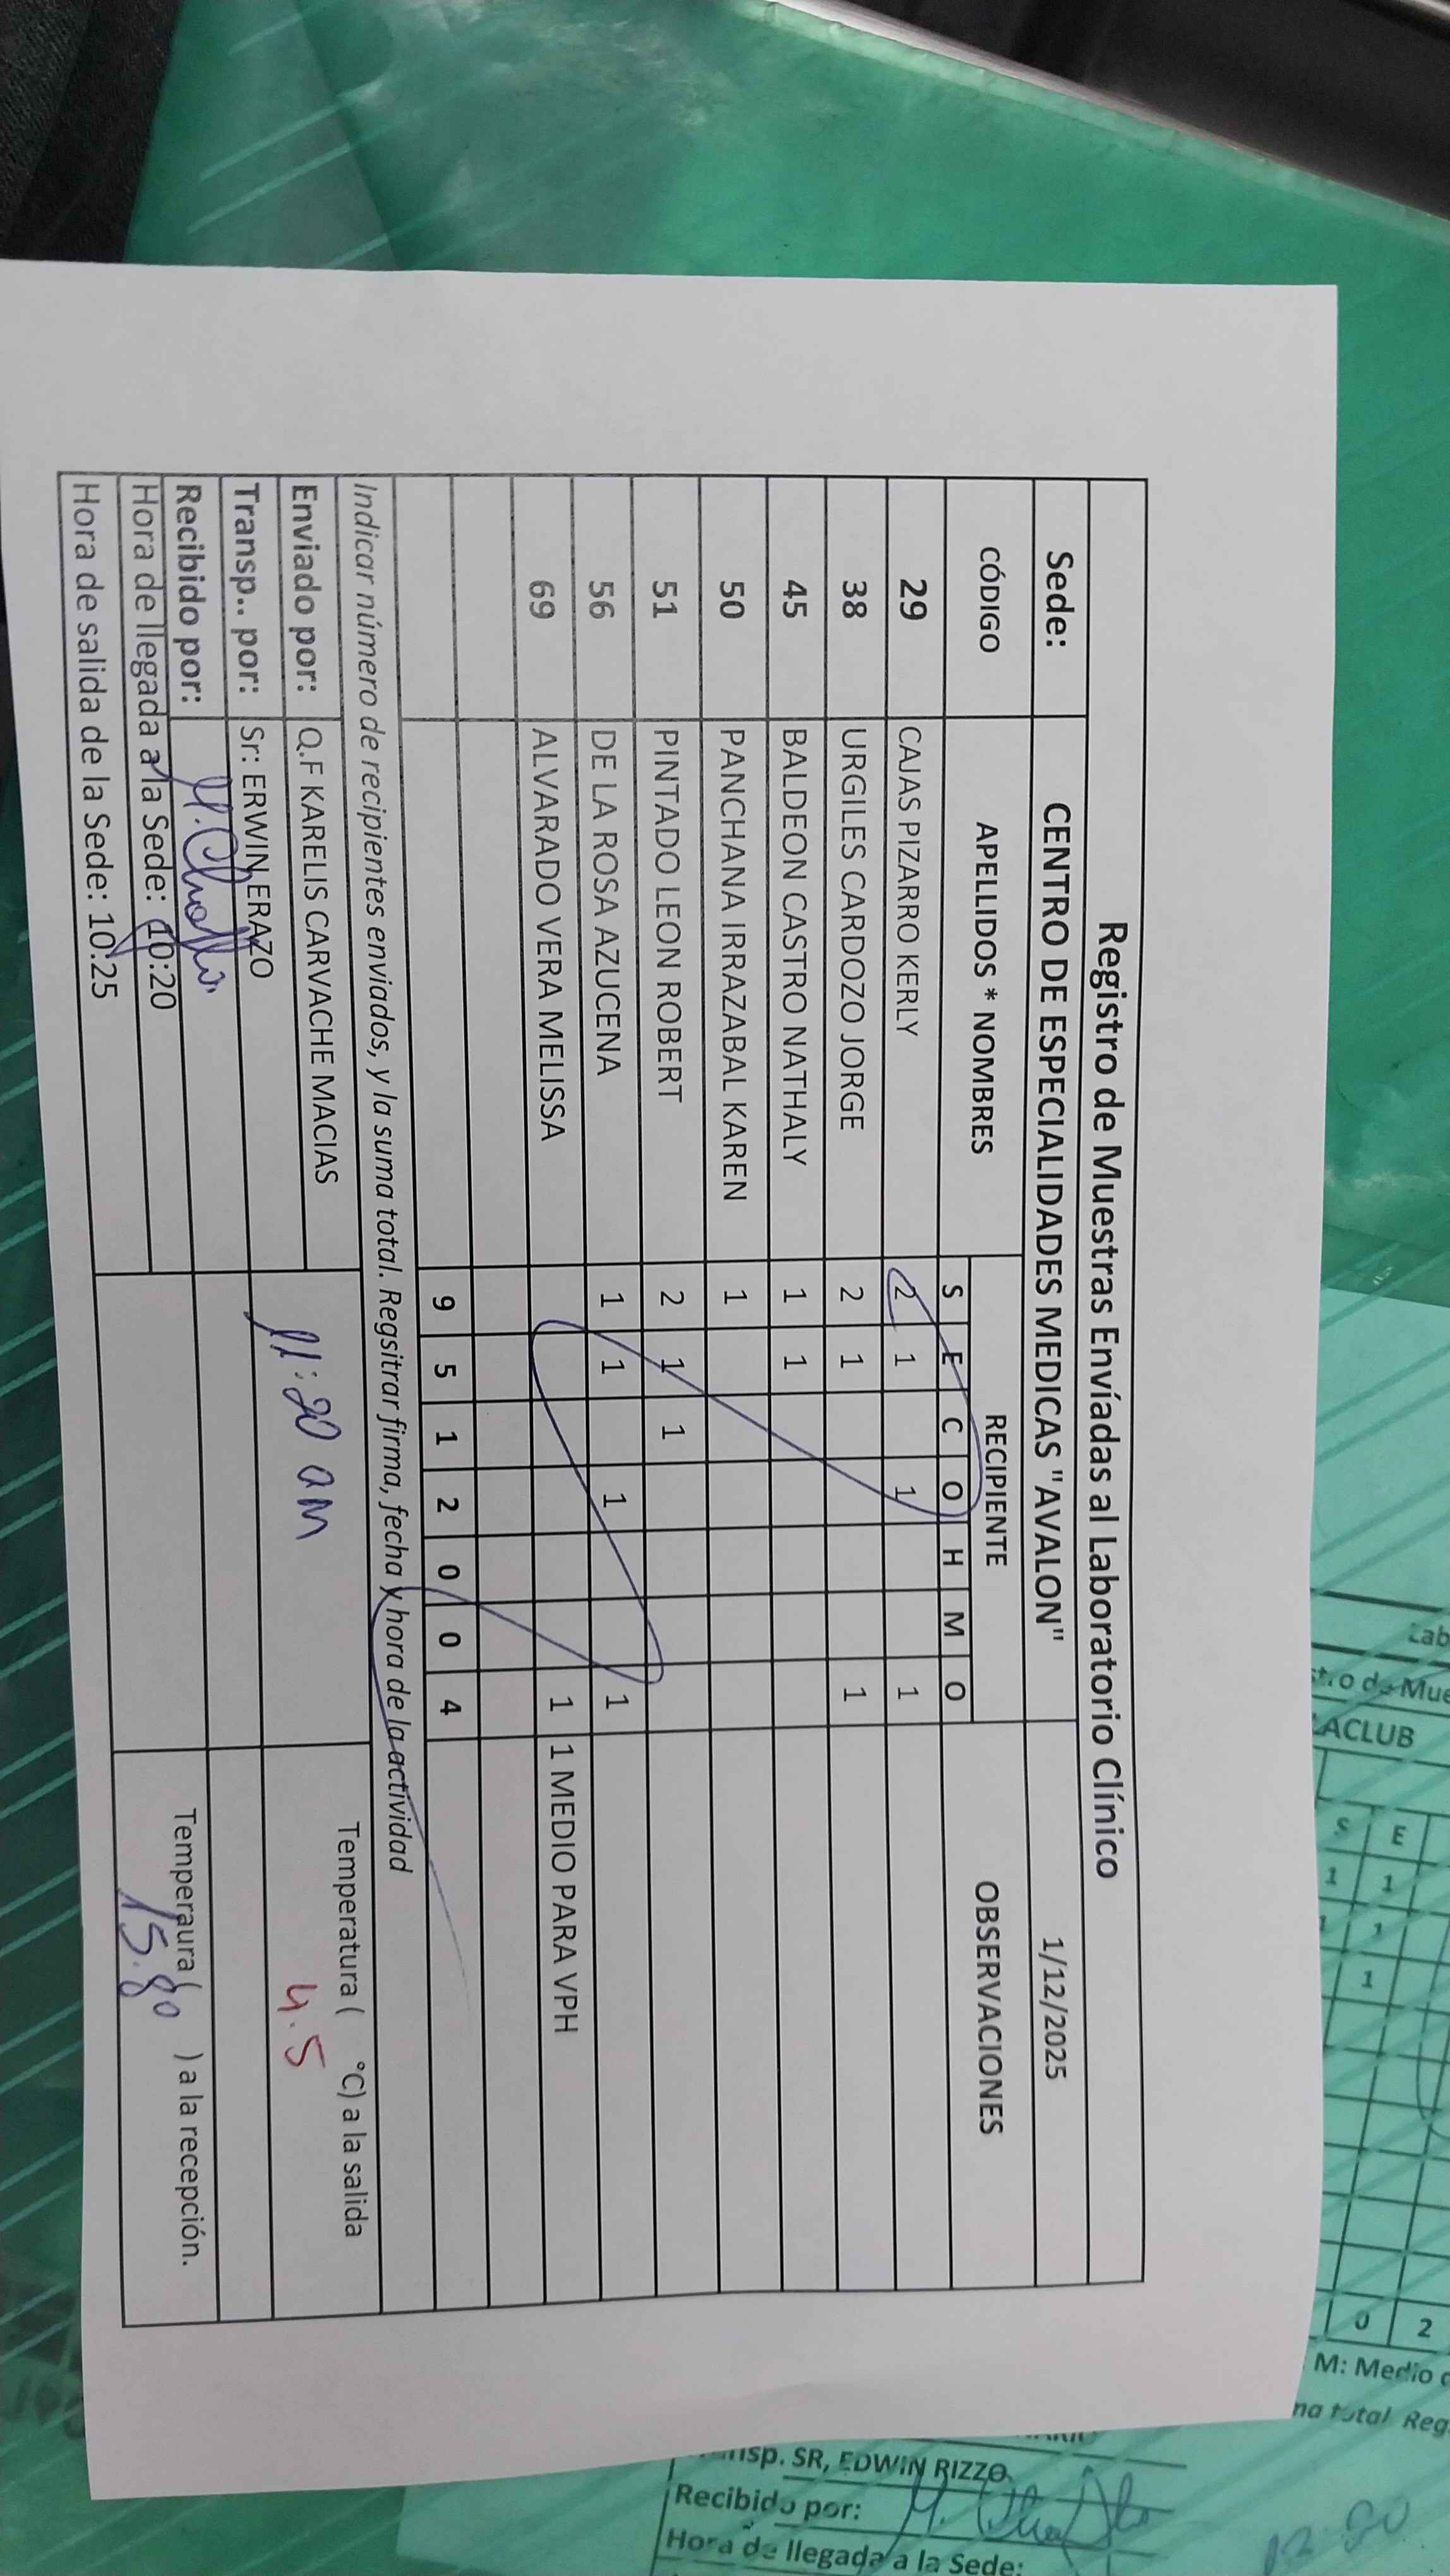 Registro de Muestras Envíadas al Laboratorio Clínico
Sede: CENTRO DE ESPECIALIDADES MEDICAS "AVALON" 1/12/2025
CÓDIGO APELLIDOS * NOMBRES RECIPIENTE OBSERVACIONES
S E C O H M O
29 CAJAS PIZARRO KERLY 2 1 1 1
38 URGILES CARDOZO JORGE 2 1 1
45 BALDEON CASTRO NATHALY 1 1
50 PANCHANA IRRAZABAL KAREN 1
51 PINTADO LEON ROBERT 2 1 1
56 DE LA ROSA AZUCENA 1 1 1 1
69 ALVARADO VERA MELISSA 1 1 MEDIO PARA VPH
9 5 1 2 0 0 4
Indicar número de recipientes enviados, y la suma total. Regsitrar firma, fecha y hora de la actividad
Enviado por: Q.F KARELIS CARVACHE MACIAS Temperatura ( °C) a la salida
4.5
Transp.. por: Sr: ERWIN ERAZO 11:20 am
Recibido por: Temperaura ( ) a la recepción.
15.80
Hora de llegada a la Sede: 10:20
Hora de salida de la Sede: 10:25
ACLUB
S E
1 1
1 1
1
0 2
M: Medio
total. Reg
SR, EDWIN RIZZO
Recibido por:
Hora de llegada a la Sede: